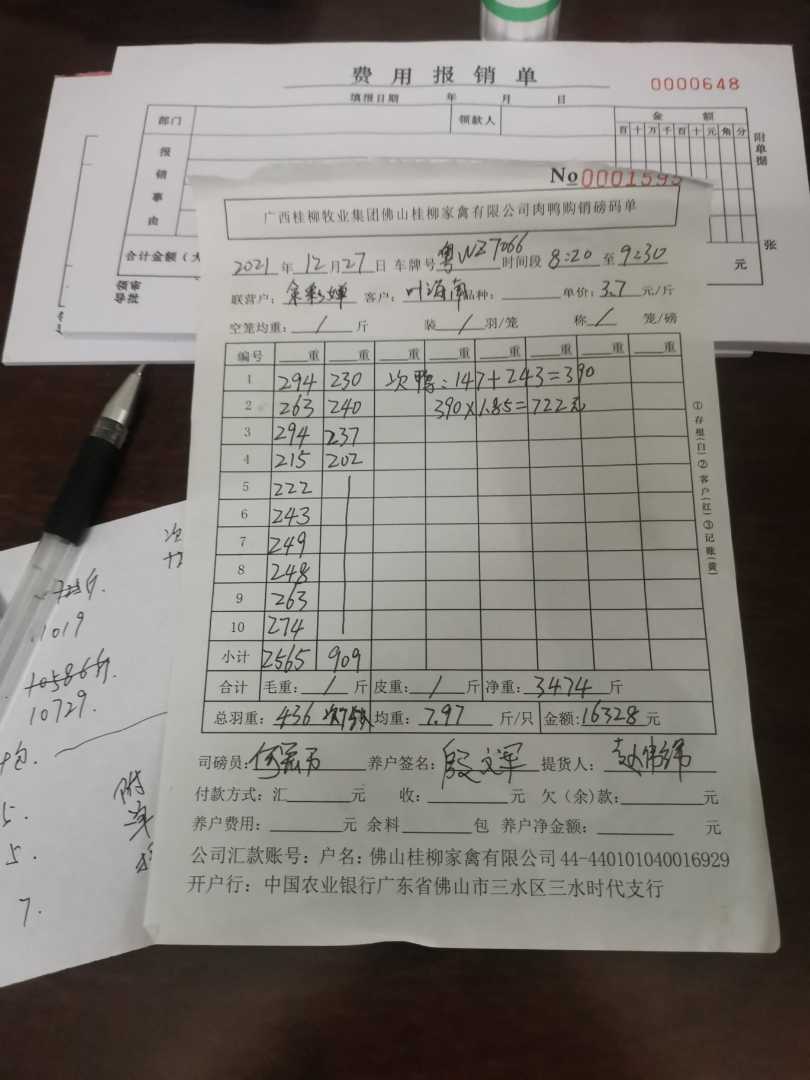 费用报销单
0000648
填报日期 年 月 日
部门 领款人 金额
百十万千百十元角分
附单据
报销事由
张
合计金额(大 元
领审
导批
No 0001593
广西桂柳牧业集团佛山桂柳家禽有限公司肉鸭购销磅码单
2021年12月27日 车牌号粤WZ7066时间段8:20至9:30
联营户: 客户:叶海南 品种: 单价:3.7元/斤
空笼均重:/斤 装/羽/笼 称/笼/磅
编号 重 重 重 重 重 重 重 重
1 294 230 次鸭:147+243=390
2 263 240 390×1.85=722元
3 294 237
4 215 202
5 222
6 243
7 249
8 248
9 263
10 274
小计 2565 909
合计 毛重:/斤 皮重:/斤 净重:3474斤
总羽重:436 次75只 均重:7.97斤/只 金额:16328元
司磅员: 养户签名:殷文军 提货人:
付款方式:汇 元 收: 元 欠(余)款: 元
养户费用: 元 余料 包 养户净金额: 元
公司汇款账号:户名:佛山桂柳家禽有限公司44-440101040016929
开户行:中国农业银行广东省佛山市三水区三水时代支行
①存根(白)②客户(红)③记账(黄)
次
1019
10586斤.
10729.
包.
附
单
5.
5.
7.